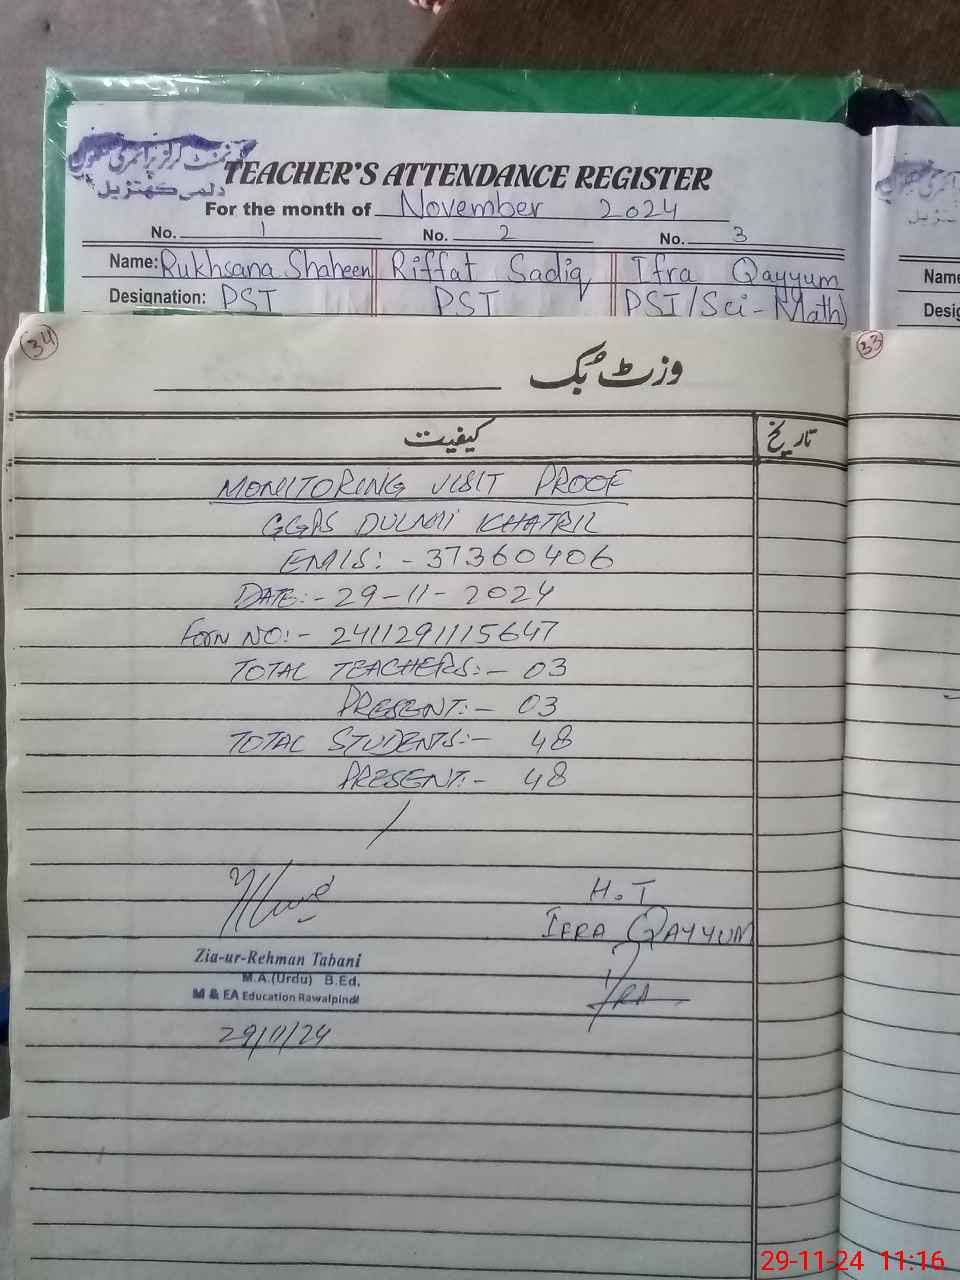 گورنمنٹ گرلز پرائمری سکول
دلمی کھتریل
TEACHER'S ATTENDANCE REGISTER
For the month of November 2024
No. 1 No. 2 No. 3
Name: Rukhsana Shaheen Riffat Sadiq Ifra Qayyum Name
Designation: PST PST PST/Sci-Math) Desig
34 وزٹ بک 33
کیفیت تاریخ
MONITORING VISIT PROOF
GGPS DULMI KHATRIL
EMIS:-37360406
DATE:-29-11-2024
FORM NO:-2411291115647
TOTAL TEACHERS:-03
PRESENT:-03
TOTAL STUDENTS:-48
PRESENT:-48
H.T
IFRA QAYYUM
Zia-ur-Rehman Tabani
M.A.(Urdu) B.Ed.
M & EA Education Rawalpindi
IFRA
29/11/24
29-11-24 11:16